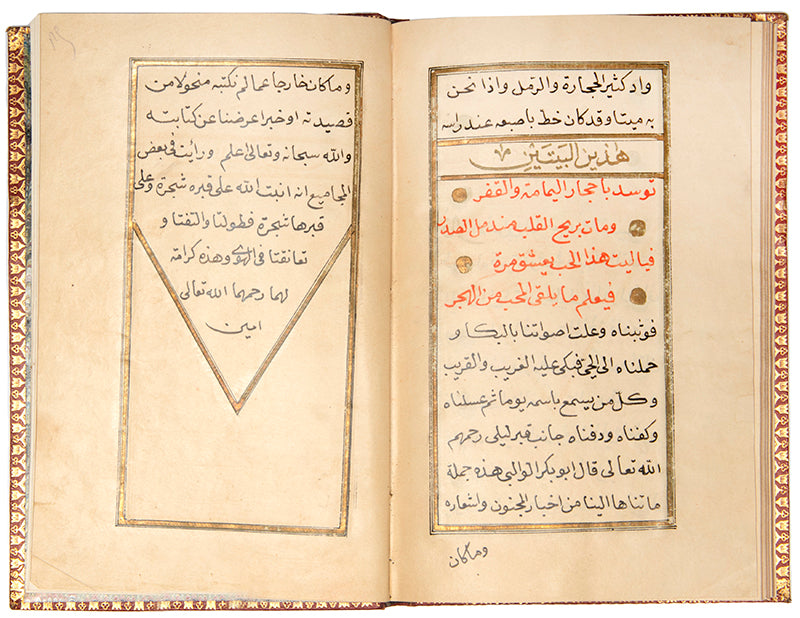 واد كثير الحجارة والرمل واذا نحن
به ميتا وقد كان خط باصبعه عند راسه
هذين البيتين
توسد باحجار اليمامة والقفر
ومات بريح القلب مندمل الصدر
فياليت هذا الحب يعشق مرة
فيعلم ما يلقى المحب من الهجر
فوثبناه وعلت اصواتنا بالبكا و
حملناه الى الحي فبكى عليه الغريب والقريب
وكل من يسمع باسمه يوما ثم غسلناه
وكفناه ودفناه جانب قبر ليلى رحمهم
الله تعالى قال ابو بكر الوالبي هذه جملة
ما تناها الينا من اخبار المجنون واشعاره
وما كان
وما كان خارجا عما لم نكتبه منحولا من
قصيدته او خبرا عرضنا عن كتابته
والله سبحانه وتعالى اعلم ورأيت في بعض
المجاميع انه انبت الله على قبره شجرة وعلى
قبرها شجرة فطولتا والتفتا و
تعانقتا في الهوى وهذه كرامة
لهما رحمهما الله تعالى
امين